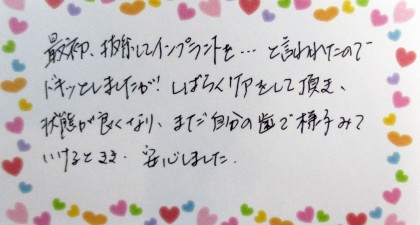 最初、抜歯してインプラントを… と言われたので
ドキッとしましたが! しばらくケアをして頂き、
状態が良くなり、まだ自分の歯で様子みて
いけるとき、安心しました.